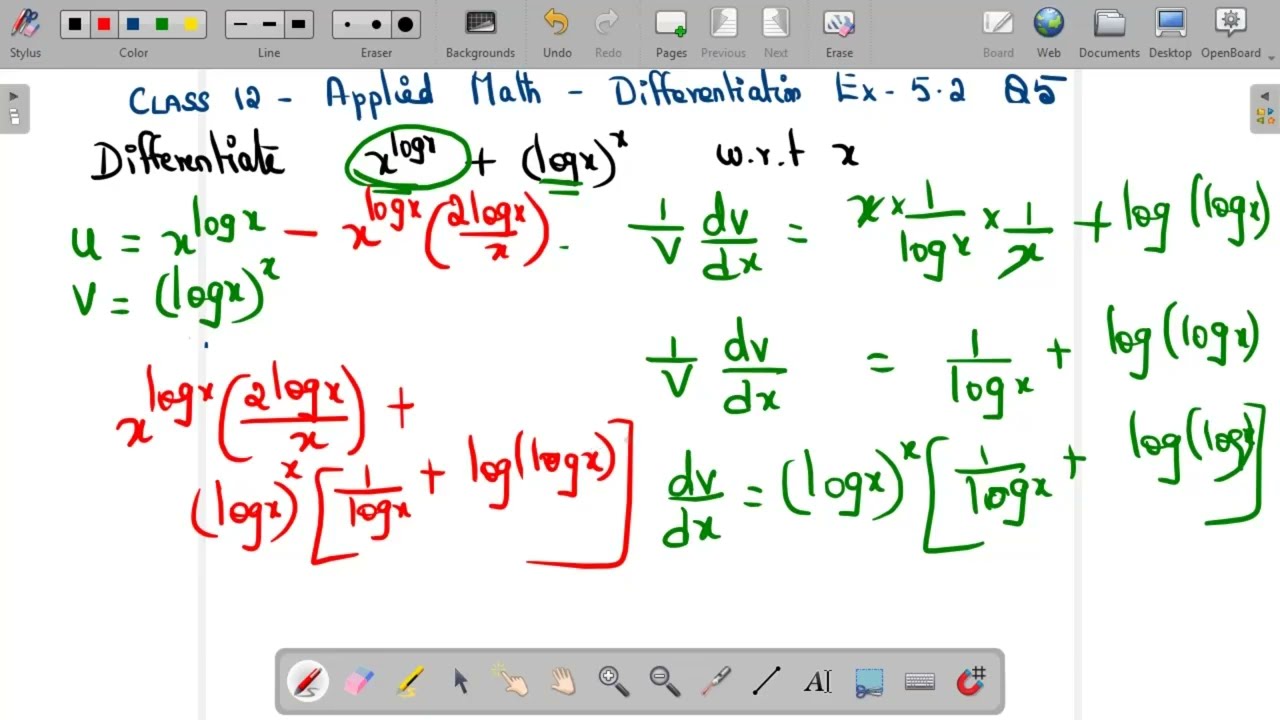 Stylus Color Line Eraser Backgrounds Undo Redo Pages Previous Next Erase Board Web Documents Desktop OpenBoard
CLASS 12 - Applied Math - Differentiation Ex - 5.2 Q5
Differentiate x^logx + (logx)^x w.r.t x
u = x^logx — x^logx (2logx/x) -
V = (logx)^x
x^logx (2logx/x) +
(logx)^x [1/logx + log(logx)]
1/V dv/dx = x × 1/logx × 1/x + log (logx)
1/V dv/dx = 1/logx + log(logx)
dv/dx = (logx)^x [1/logx + log(logx)]